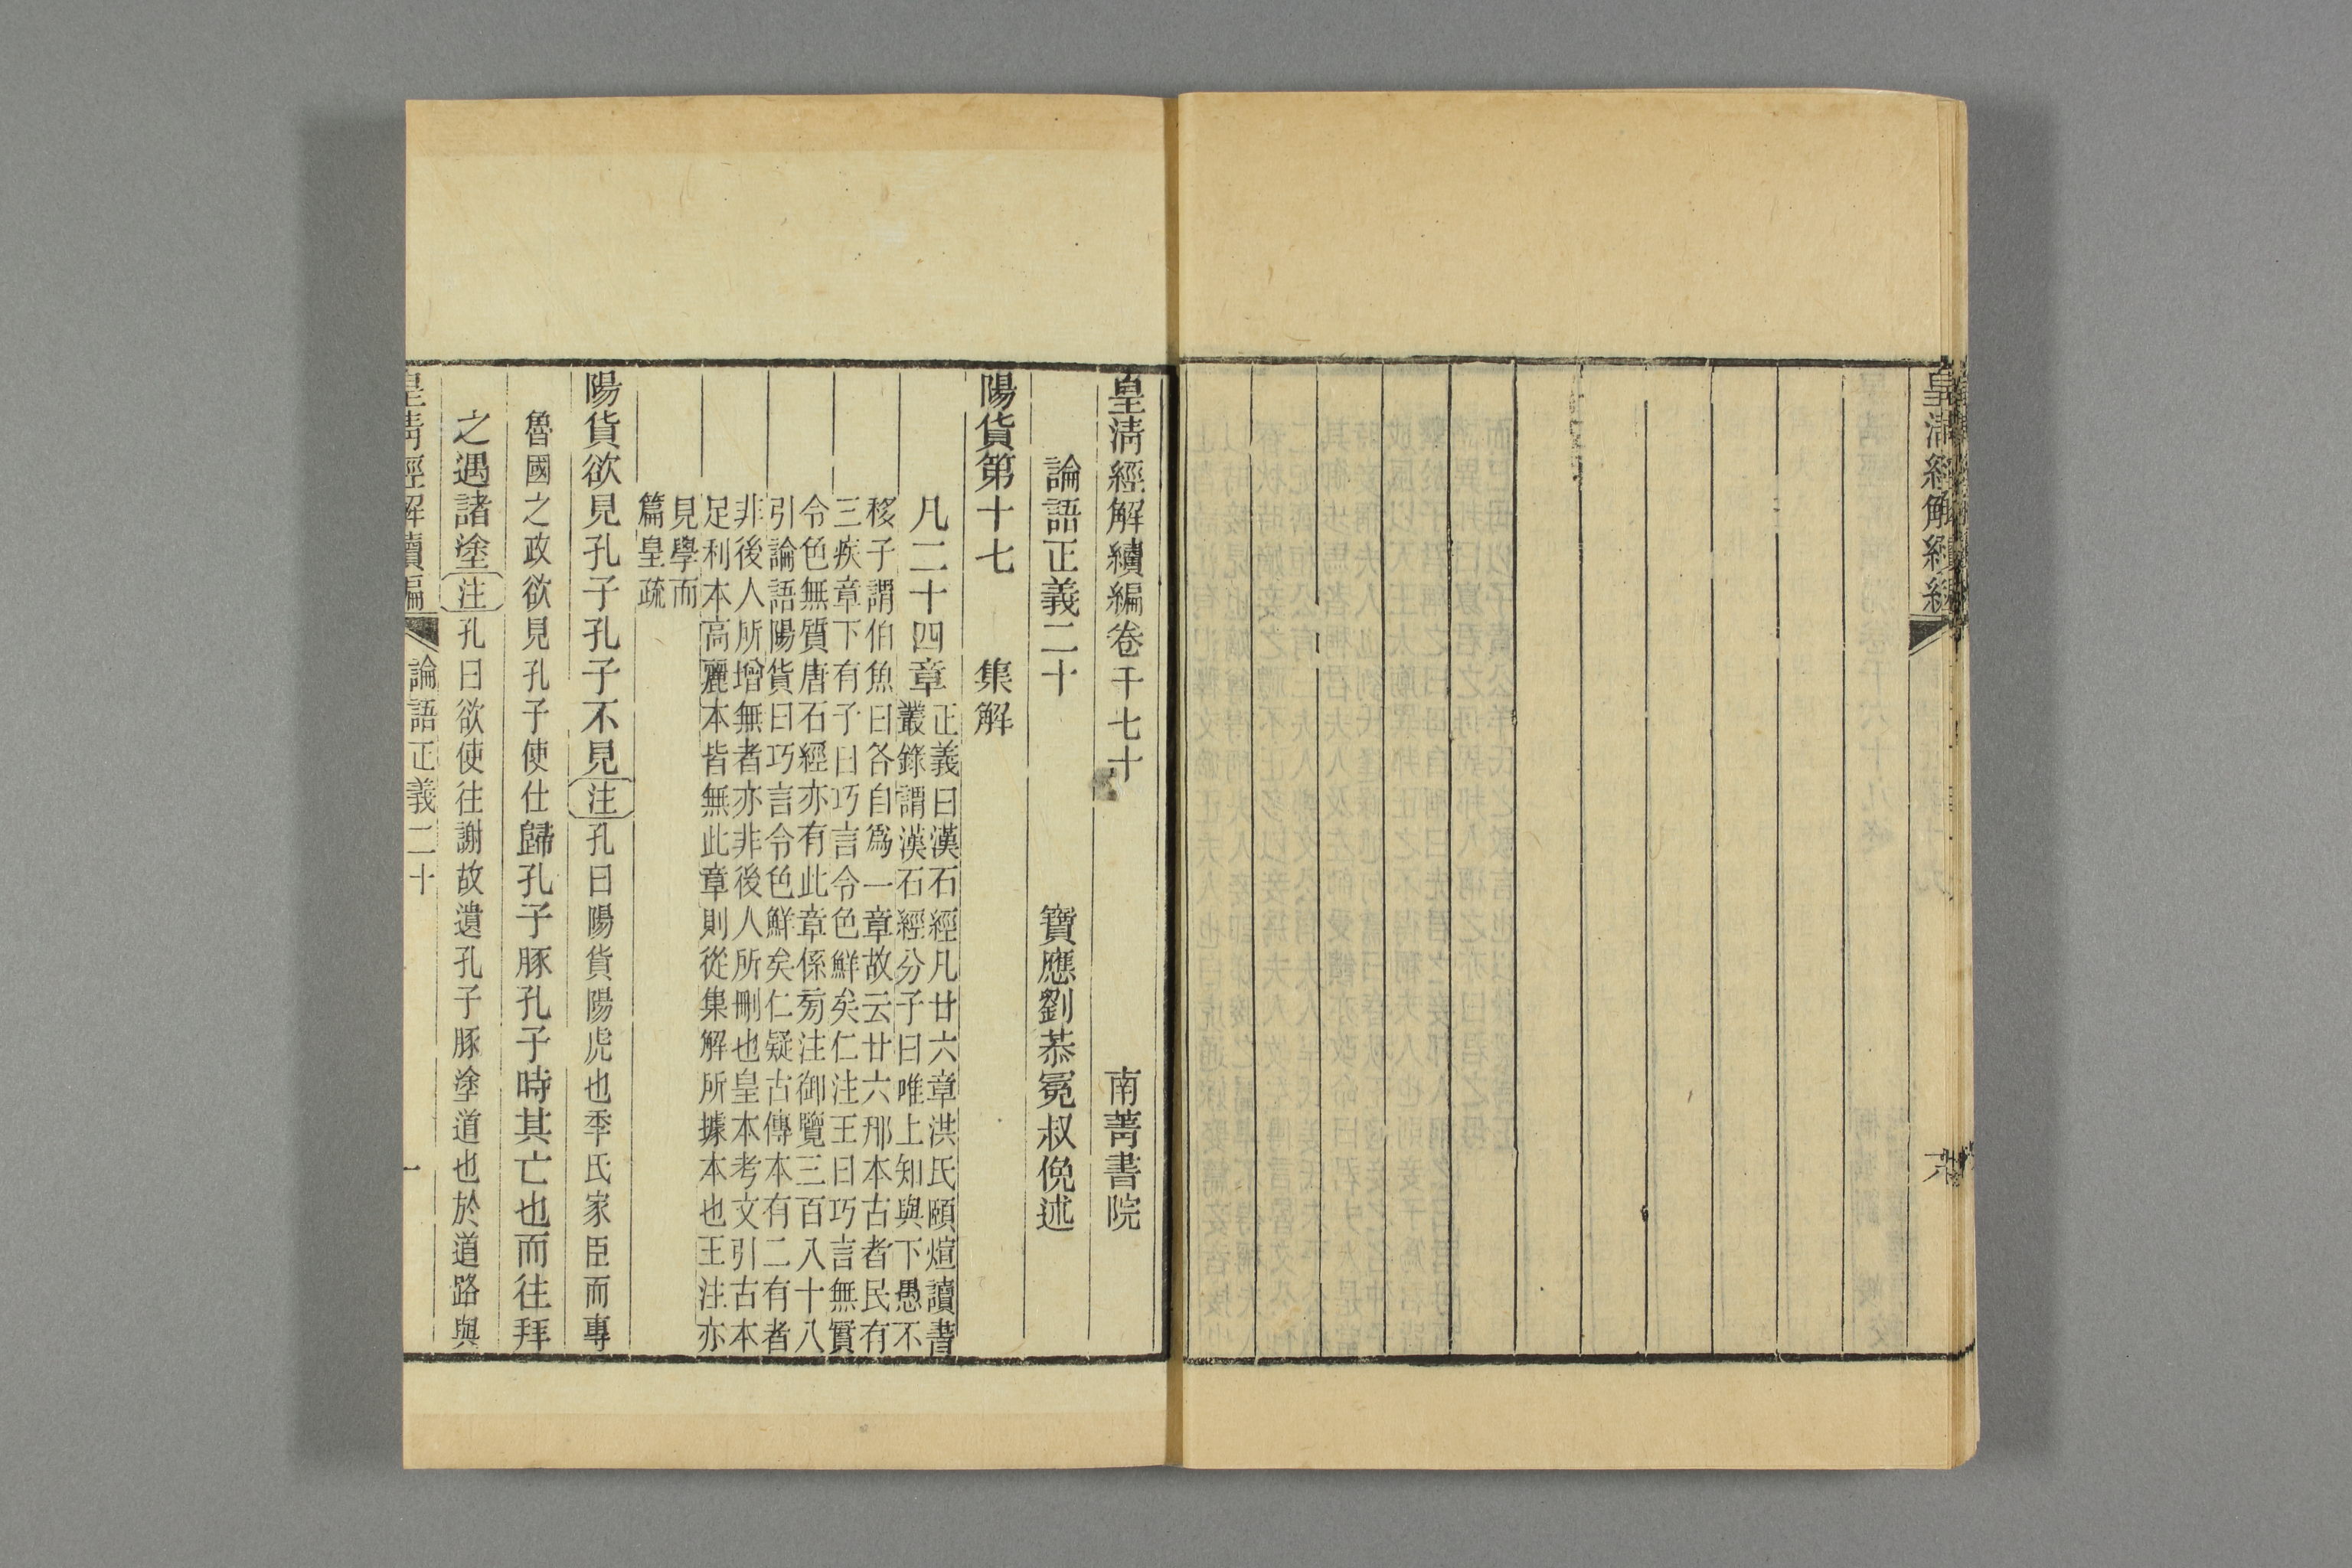 皇清經解續編
六
皇清經解續編卷千七十 南菁書院
論語正義二十 寶應劉恭冕叔俛述
陽貨第十七 集解
凡二十四章
正義曰漢石經凡廿六章洪氏頤煊讀書
叢錄謂漢石經分子曰唯上知與下愚不
移子謂伯魚曰各自爲一章故云廿六邢本古者民有
三疾章下有子曰巧言令色鮮矣仁注王曰巧言無實
令色無質唐石經亦有此章係㫄注御覽三百八十八
引論語陽貨曰巧言令色鮮矣仁疑古傳本有二有者
非後人所增無者亦非後人所刪也皇本考文引古本
足利本高麗本皆無此章則從集解所據本也王注亦
見學而
篇皇疏
陽貨欲見孔子孔子不見注孔曰陽貨陽虎也季氏家臣而專
魯國之政欲見孔子使仕歸孔子豚孔子時其亡也而往拜
之遇諸塗注孔曰欲使往謝故遺孔子豚塗道也於道路與
皇清經解續編 論語正義二十 一